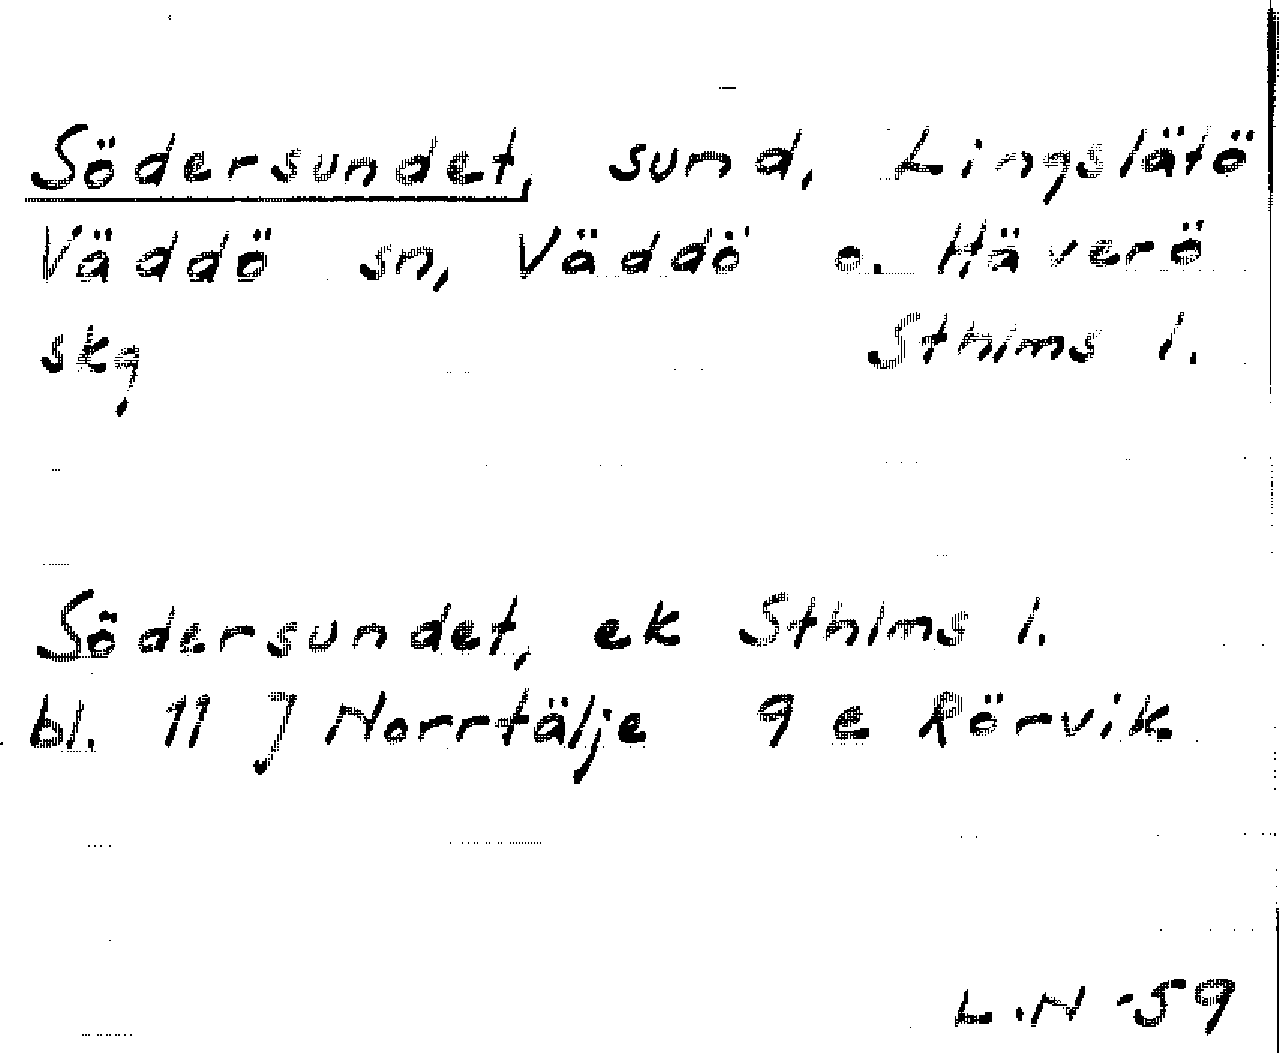 Södersundet, sund, Lingslätö
Väddö sn, Väddö o. Häverö
skg Sthlms l.
Södersundet, ek Sthlms l.
bl. 11 J Norrtälje 9 e Rörvik
L.N -59